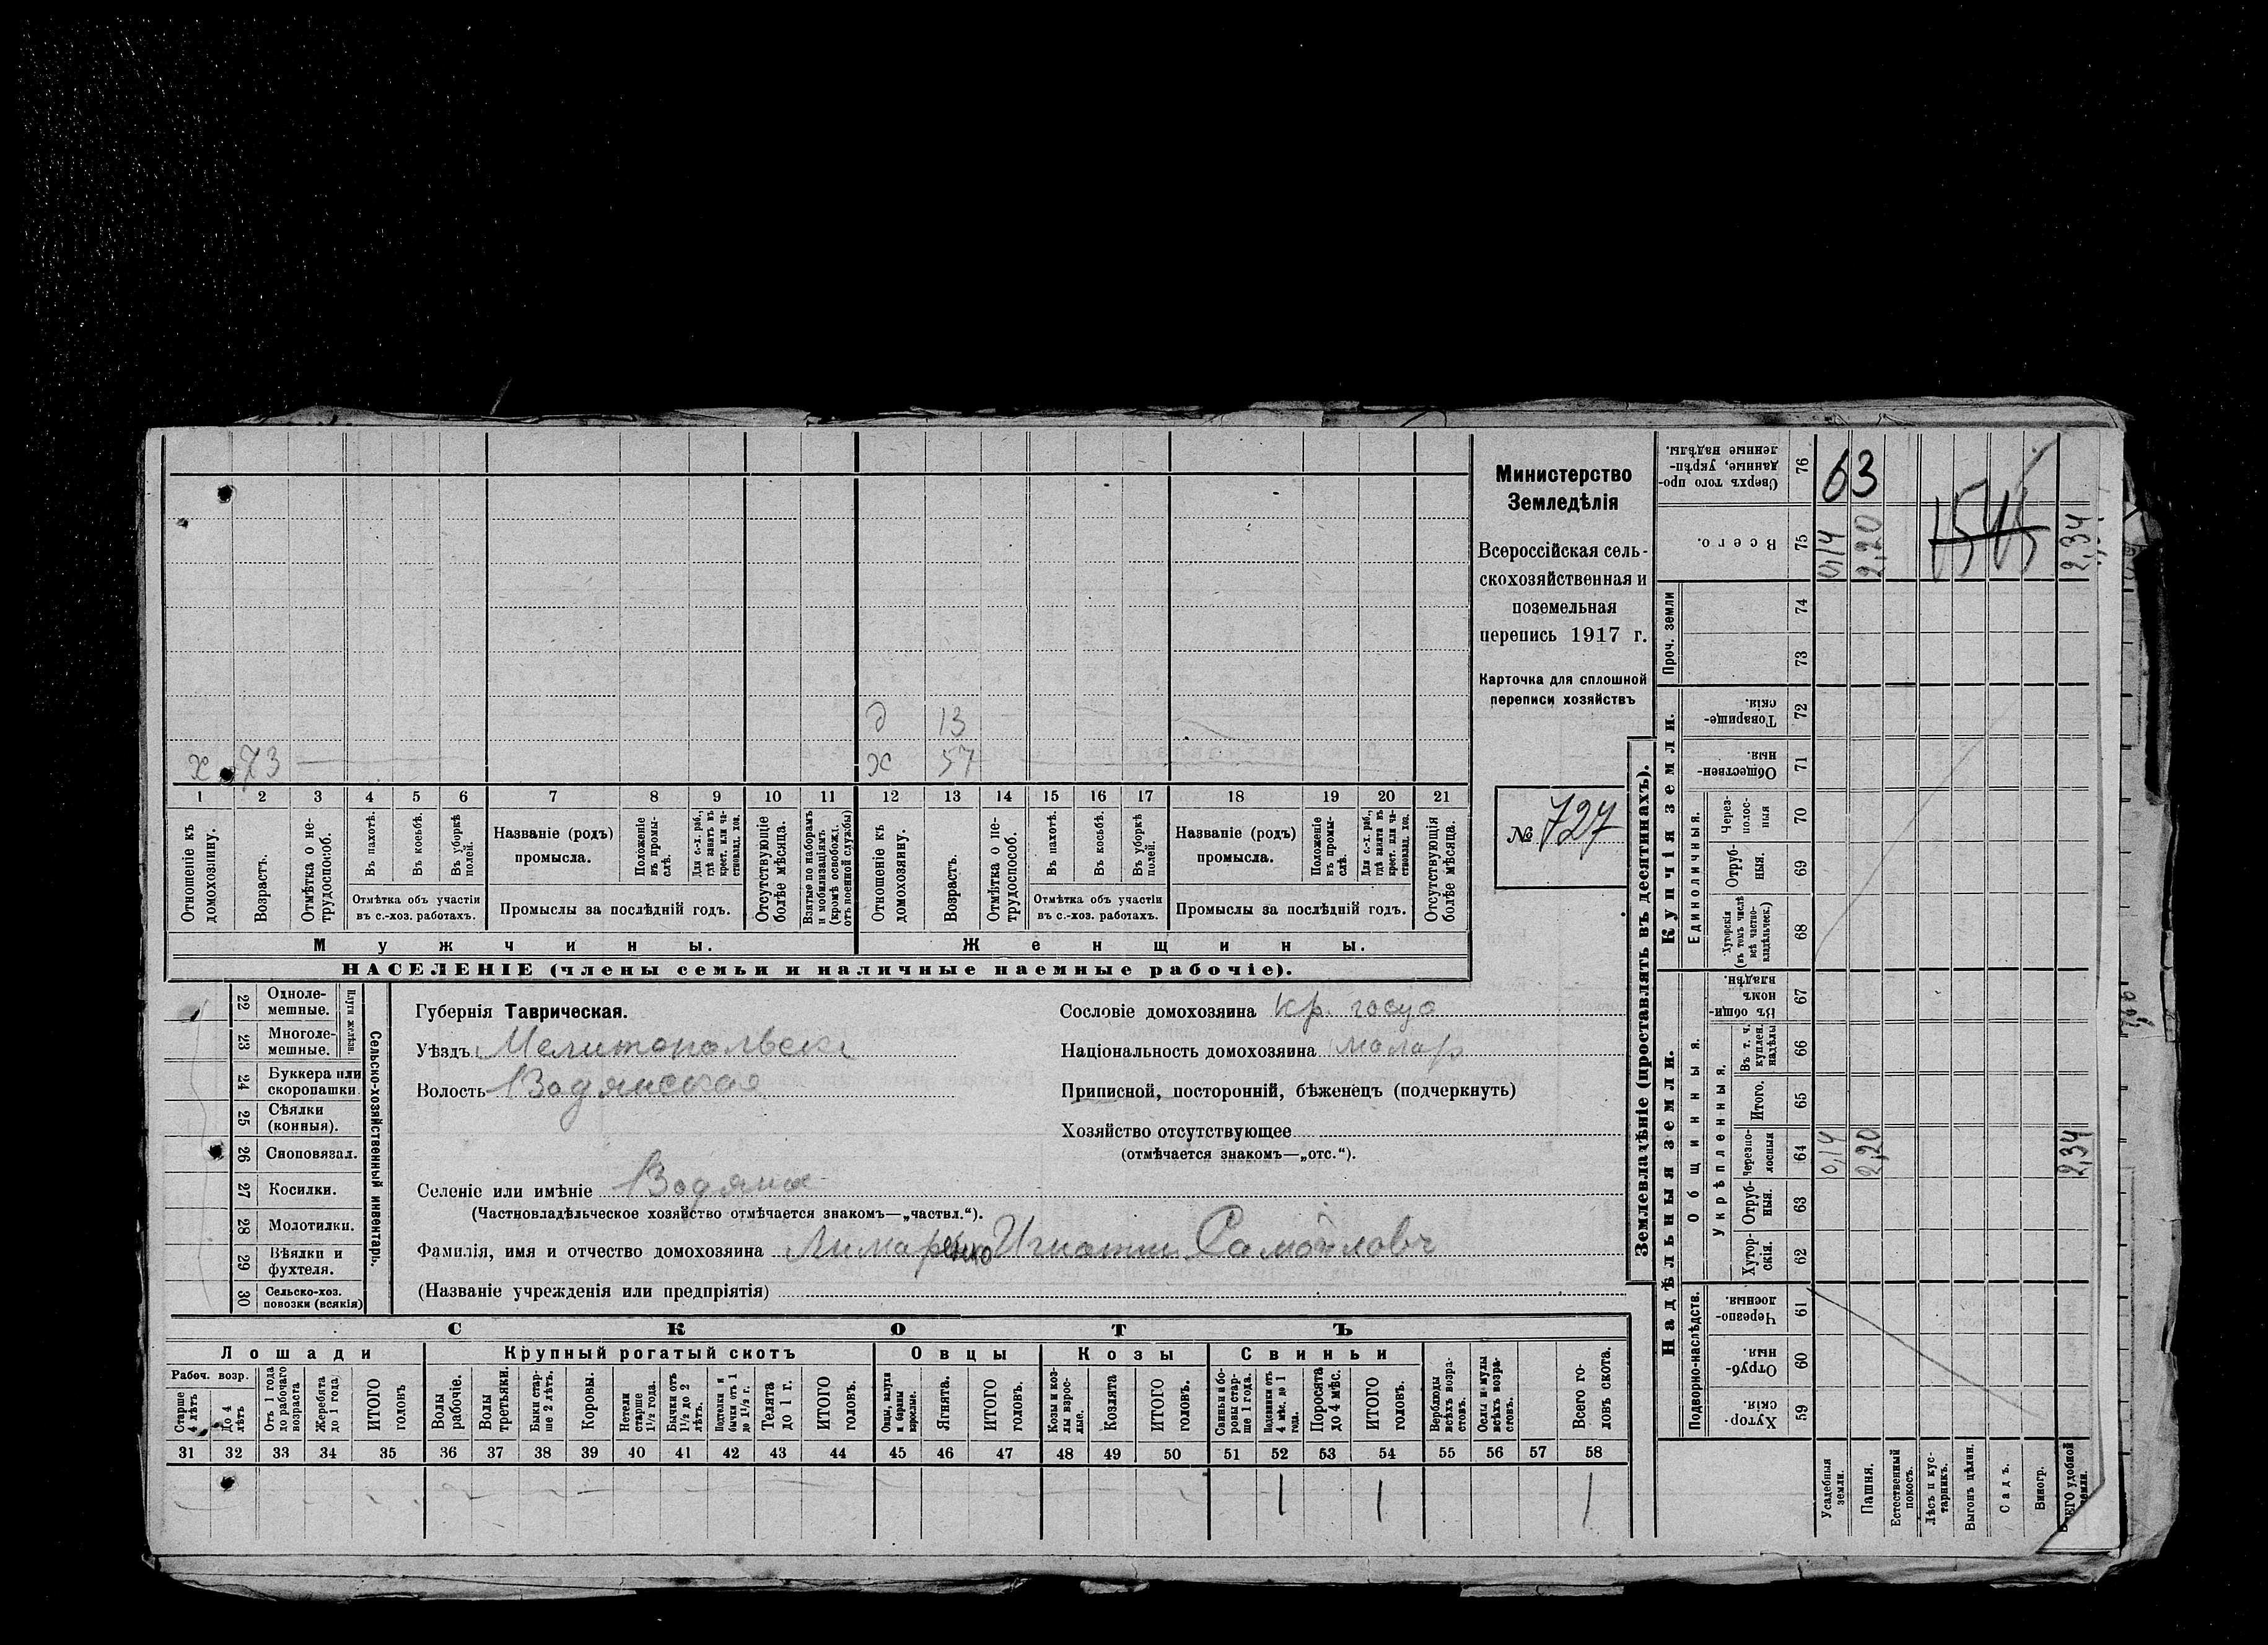 д 13
х 73 х 57
1 2 3 4 5 6 7 8 9 10 11 12 13 14 15 16 17 18 19 20 21
Отношеніе къ домохозяину.
Возрастъ.
Отмѣтка о нетрудоспособ.
Въ пахотѣ.
Въ косьбѣ.
Въ уборкѣ полей.
Отмѣтка объ участіи въ с.-хоз. работахъ.
Названіе (родъ) промысла.
Положеніе въ промыслѣ.
Для с.-х. раб., гдѣ занятъ въ крест. или частновлад. хоз.
Промыслы за послѣдній годъ.
Отсутствующіе болѣе мѣсяца.
Взятые по наборамъ и мобилизаціямъ (кромѣ освобожд. отъ военной службы)
Отношеніе къ домохозяину.
Возрастъ.
Отмѣтка о нетрудоспособ.
Въ пахотѣ.
Въ косьбѣ.
Въ уборкѣ полей.
Отмѣтка объ участіи въ с.-хоз. работахъ.
Названіе (родъ) промысла.
Положеніе въ промыслѣ.
Для с.-х. раб., гдѣ занята въ крест. или частновлад. хоз.
Промыслы за послѣдній годъ.
Отсутствующія болѣе мѣсяца.
Мужчины. Женщины.
НАСЕЛЕНІЕ (члены семьи и наличные наемные рабочіе).
Министерство
Земледѣлія
Всероссійская сель-
скохозяйственная и
поземельная
перепись 1917 г.
Карточка для сплошной
переписи хозяйствъ
№ 727
22 Одноле-мешные.
23 Многоле-мешные.
Плуги желѣзн.
24 Буккера или скоропашки
25 Сѣялки (конныя).
26 Сноповязал.
27 Косилки.
28 Молотилки.
29 Вѣялки и фухтеля.
30 Сельско-хоз. повозки (всякія)
Сельско-хозяйственный инвентарь.
Губернія Таврическая.
Уѣздъ Мелитопольск
Волость Водянская
Сословіе домохозяина кр. госуд
Національность домохозяина малор
Приписной, посторонній, бѣженецъ (подчеркнуть)
Хозяйство отсутствующее
(отмѣчается знакомъ—„отс.“).
Селеніе или имѣніе Водяна
(Частновладѣльческое хозяйство отмѣчается знакомъ—„частвл.“).
Фамилія, имя и отчество домохозяина Лимаренко Игнатий Самойловъ
(Названіе учрежденія или предпріятія)
СКОТЪ
Лошади Крупный рогатый скотъ Овцы Козы Свиньи
Рабоч. возр.
Старше 4 лѣтъ
До 4 лѣтъ
Отъ 1 года до рабочаго возраста
Жеребята до 1 года
ИТОГО головъ
Волы рабочіе.
Волы третьяки.
Быки старше 2 лѣтъ.
Коровы.
Нетели старше 1½ года.
Бычки отъ 1½ до 2 лѣтъ.
Подтелки и бычки отъ 1 до 1½ г.
Телята до 1 г.
ИТОГО головъ.
Овцы, валухи и бараны взрослые.
Ягнята.
ИТОГО головъ.
Козы и козлы взрослые.
Козлята
ИТОГО головъ.
Свиньи и боровы старше 1 года.
Подсвинки отъ 4 мѣс. до 1 года.
Поросята до 4 мѣс.
ИТОГО головъ.
Верблюды всѣхъ возрастовъ.
Ослы и мулы всѣхъ возрастовъ.
Всего головъ скота.
31 32 33 34 35 36 37 38 39 40 41 42 43 44 45 46 47 48 49 50 51 52 53 54 55 56 57 58
1 1 1
Землевладѣніе (проставлять въ десятинахъ).
Сверхъ того проданные, укрѣпленные надѣлы. 76 63
Всего. 75 0,14 2,20 1545 2,34
Проч. земли 74
73
Купчія земли.
Товарищескія. 72
Общественныя 71
Единоличныя.
Черезполосныя 70
Отрубныя. 69
Хуторскія (въ томъ числѣ всѣ частновладѣльческ.) 68
Надѣльныя земли.
Общинныя.
Въ общинномъ владѣн. 67
Укрѣпленныя.
Въ т. ч. куплен. надѣлы 66
Итого. 65
Черезполосныя 64 0,14 2,20 2,34
Отрубныя. 63
Хуторскія. 62
Подворно-наслѣдств.
Черезполосныя. 61
Отрубныя. 60
Хуторскія. 59
Усадебныя земли.
Пашня.
Естественный покосъ.
Лѣсъ и кустарникъ.
Выгонъ цѣлин.
Садъ.
Виногр.
ВСЕГО удобной земли.